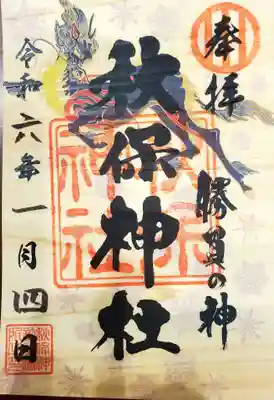 奉拝
勝負の神
秋保神社
令和六年一月四日